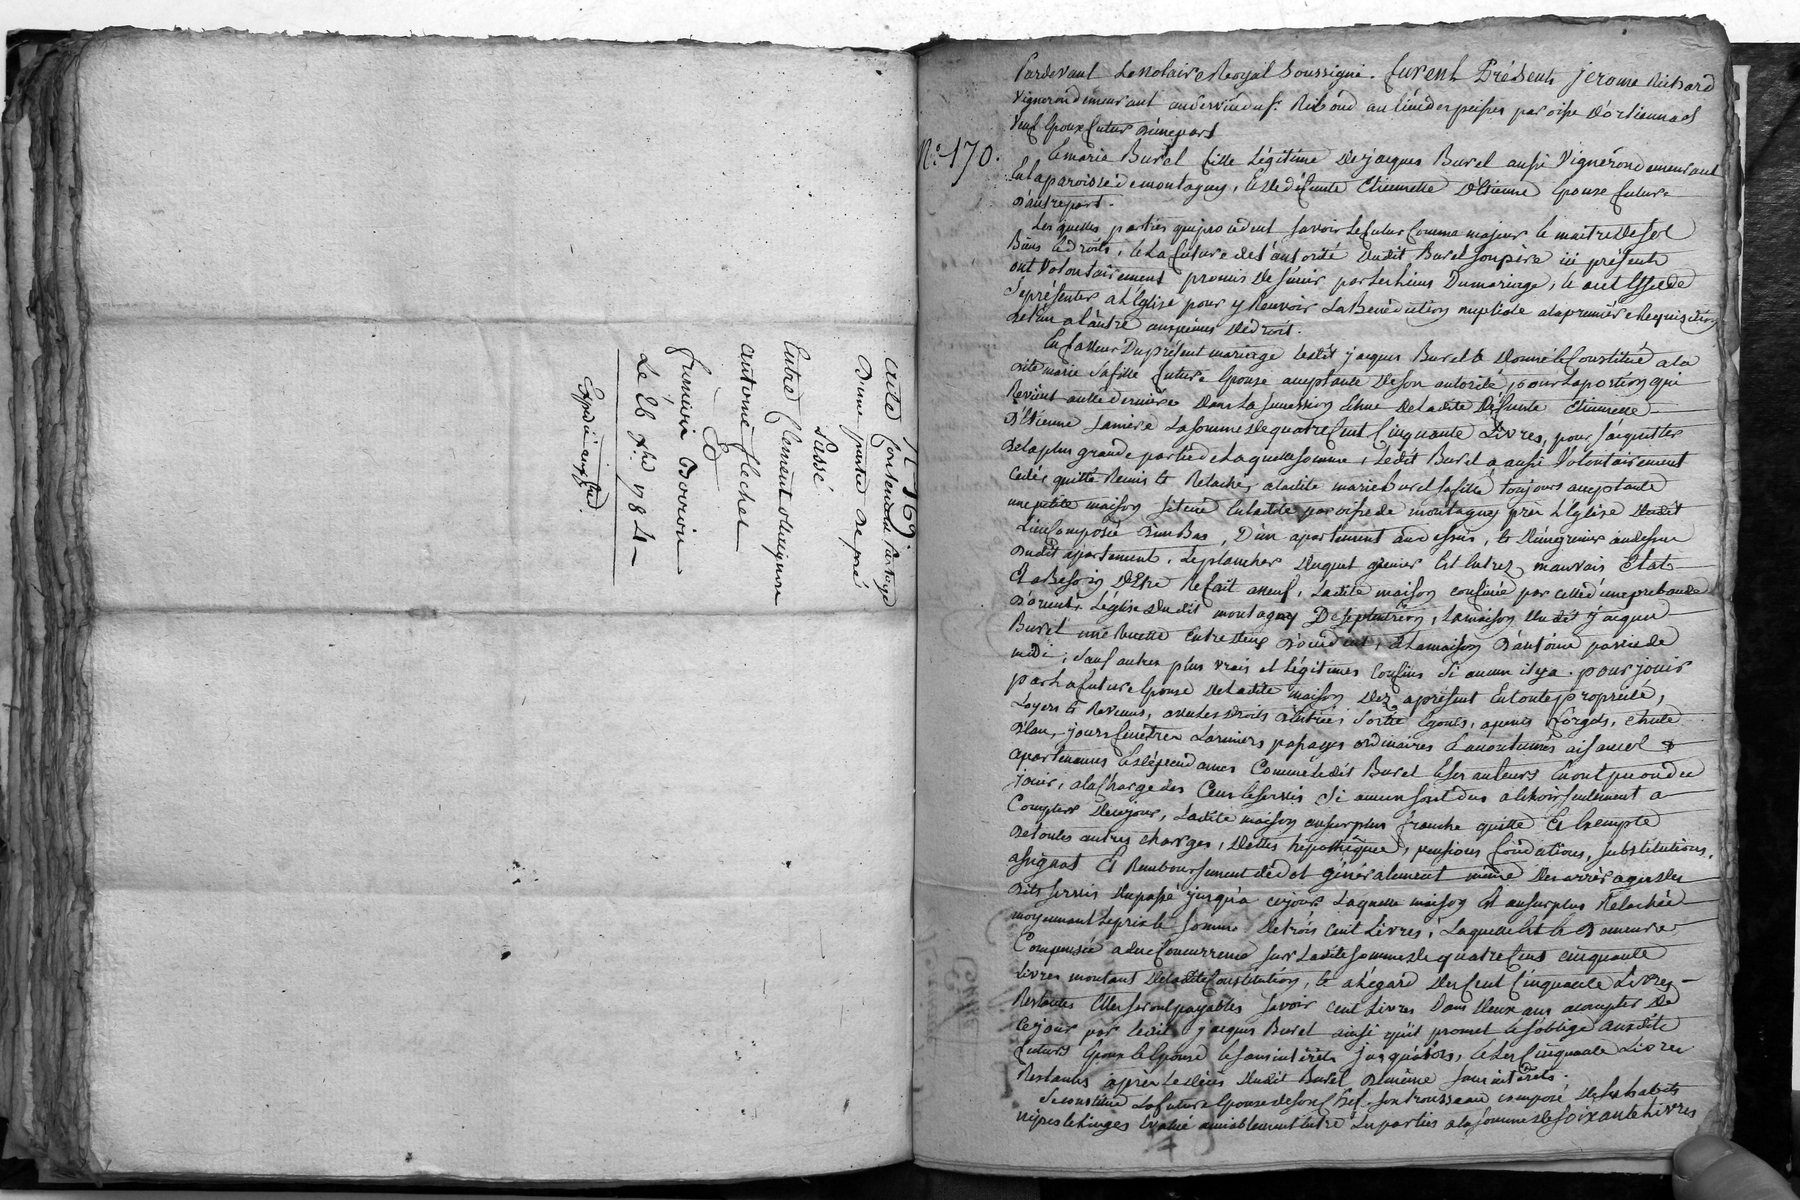 N° 169.
acte Contenant Partage
D'une partie de pré
Passé
Entre Clement olluignon
antoine flachet
&
frumisin Bouvion
Le 26 Xbre 1784
Expédié aux parties
N°. 170.
Pardevant Le Notaire Royal Soussigné. furent Présents jerome Richard
Vigneron demeurant au Lieu des paroisse d'Orlienas
Veuf Epoux futur D'une part
Et marie Burel fille Légitime de jacques Burel aussi Vigneron demeurant
En la paroisse de montagny, Et de defunte Etiennette D'Etienne Epouse future
D'autre part.
Lesquelles parties qui procedent savoir Le futur Comme majeur et maitre de ses
Biens et droits, et La future de l'autorité dudit Burel son père ici présent
ont Volontairement promis de s'unir par Les Liens Du mariage, et de
se présenter a L'Eglise pour y Recevoir La Benediction nuptiale a la première Requisition
de L'un a L'autre aux peines de droit.
En faveur Du présent mariage Ledit jacques Burel a Donné et Constitué a la
dite marie sa fille future Epouse acceptante de son autorité, pour La portion qui
Revient a cette dernière Dans La succession de ladite Défunte Etiennette
D'Etienne sa mère La somme de quatre Cent Cinquante Livres, pour s'acquitter
de la plus grande partie de Laquelle somme, Ledit Burel a aussi Volontairement
Cédé, quitté Remis et Relaché, a ladite marie Burel sa fille toujours acceptante
une petite maison située en ladite paroisse de montagny près L'Eglise dudit
Lieu Composée D'un Bas, D'un apartement au dessus, et d'un grenier au dessus
dudit apartement, Le plancher duquel grenier Est en très mauvais Etat
Et a Besoin d'Etre Refait a neuf, Ladite maison confinée par celle d'une prebande
D'orient, L'église dudit montagny De septentrion, La maison dudit jacques
Burel une Ruette Entre deux D'occident, et La maison D'antoine de
midi, sauf autres plus vrais et Légitimes Confins si aucun il y a. pour jouir
par La future Epouse de Ladite maison dez apresent En toute propriété,
Loyers et Revenus, avec ses Droits d'entrée, sortie Egouts, chute
D'eau, jours fenêtres Larmiers passages ordinaires accoutumés aisances &
apartenances Et dépendances Comme Ledit Burel Et ses auteurs En ont pu ou du
jouir, a la Charge des Cens Et servis si aucun sont dus a Echoir seulement a
Compter de ce jour, Ladite maison au surplus franche quitte Et Exempte
de toutes autres charges, Dettes hipothèques, pensions fondations, substitutions,
assignat Et Remboursement de dot généralement même des arrérages des
dits servis du passé jusqu'a ce jour. Laquelle maison Est au surplus Relachée
moyennant Le prix et somme de trois Cent Livres, Laquelle Est et Demeure
Compensée a due Concurrence sur Ladite somme de quatre Cent cinquante
Livres montant de Ladite Constitution, et a L'égard des Cent Cinquante Livres
Restantes Elles seront payables savoir cent Livres Dans deux ans a compter de
ce jour par Ledit jacques Burel ainsi qu'il promet et s'oblige auxdits
futurs Epoux et Epouse et sans intérêts jusqu'alors, et Les Cinquante Livres
Restantes après Le décès dudit Burel De même sans intérêts.
Se constitue La future Epouse de son Chef son trousseau composé de ses habits
nipes et Linges Evalué amiablement Entre Les parties a la somme de soixante Livres